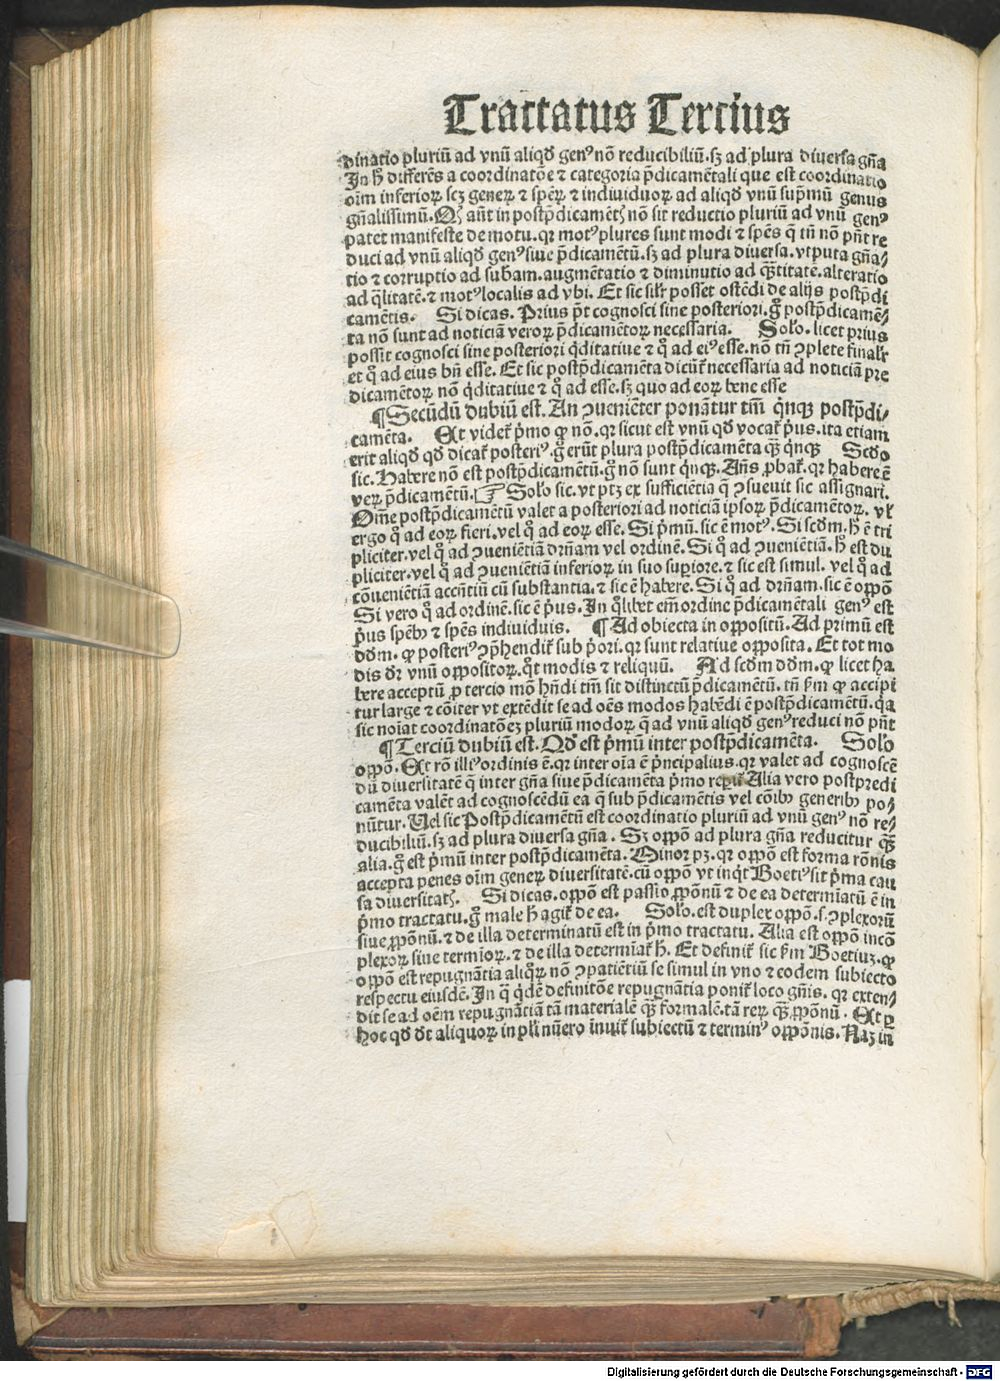 Tractatus Tercius
dinatio pluriũ ad vnũ aliqđ genꝰ nõ reducibiliũ.sꝫ ad plura diuersa gña
In h̄ differẽs a coordinatõe ⁊ categoria p̃dicamẽtali que est coordinatio
oĩm inferioꝝ scꝫ geneꝝ ⁊ spẽꝝ ⁊ indiuiduoꝝ ad aliqđ vnũ sup̃mũ genus
gñalissimũ. Qꝫ aũt in postp̃dicamẽtꝭ nõ sit reductio pluriũ ad vnũ genꝰ
patet manifeste de motu. qꝛ motꝰ plures sunt modi ⁊ spẽs q̃ tñ nõ pñt re
duci ad vnũ aliqđ genꝰ siue p̃dicamẽtũ. sꝫ ad plura diuersa. vtputa gña/
tio ⁊ corruptio ad subam. augmẽtatio ⁊ diminutio ad q̃titatẽ. alteratio
ad q̃litatẽ. ⁊ motꝰ localis ad vbi. Et sic silr̃ posset ostẽdi de alijs postp̃di
camẽtis. Si dicas. Prius p̃t cognosci sine posteriori. g̊ postp̃dicamẽ/
ta nõ sunt ad noticiã veroꝝ p̃dicamẽtoꝝ necessaria. Solo. licet prius
possit cognosci sine posteriori q̇ditatiue ⁊ q̊ ad eiꝰ esse. nõ tñ ꝯplete finalr̃
et q̊ ad eius bñ esse. Et sic postp̃dicamẽta dicũt̃ necessaria ad noticiã pre
dicamẽtoꝝ nõ q̇ditatiue ⁊ q̊ ad esse. sꝫ quo ad eoꝝ bene esse
¶ Secũdũ dubiũ est. An ꝯueniẽter ponãtur tm̃ q̇nqꝫ postp̃di/
camẽta. Et videt̃ p̓mo ꝙ nõ. qꝛ sicut est vnũ qđ vocat̃ p̓us. ita etiam
erit aliqđ qđ dicat̃ posteriꝰ. g̊ erũt plura postp̃dicamẽta q̃ꝫ q̇nqꝫ Scđo
sic. Habere nõ est postp̃dicamẽtũ. g̊ nõ sunt q̇nqꝫ. Añs ꝓbat̃. qꝛ habere ẽ
veꝝ p̃dicamẽtũ. ☞ Solo sic. vt ptꝫ ex sufficiẽtia q̃ ꝯsueuit sic assignari.
Om̃e postp̃dicamẽtũ valet a posteriori ad noticiã ipsoꝝ p̃dicamẽtoꝝ. vl̃
ergo q̊ ad eoꝝ fieri. vel q̊ ad eoꝝ esse. Si p̓mũ. sic ẽ motꝰ. Si scđm. h̄ ẽ tri
pliciter. vel q̊ ad ꝯueniẽtiã drñam vel ordinẽ. Si q̊ ad ꝯueniẽtiã. h̄ est du
pliciter. vel q̊ ad ꝯueniẽtiã inferioꝝ in suo sup̱iore. ⁊ sic est simul. vel q̊ ad
cõueniẽtiã accñtiũ cũ substantia. ⁊ sic ẽ habere. Si q̊ ad drñam. sic ẽ oppõ
Si vero q̊ ad ordinẽ. sic ẽ p̓us. In q̃libet em̃ ordine p̃dicamẽtali genꝰ est
p̓us spẽbꝫ ⁊ spẽs indiuiduis. ¶ Ad obiecta in oppositũ. Ad primũ est
dđm. ꝙ posteriꝰ ꝯp̃hendit̃ sub p̓ori. qꝛ sunt relatiue opposita. Et tot mo
dis dr̃ vnũ oppositoꝝ. q̊t modis ⁊ reliquũ. Ad scđm dđm. ꝙ licet ha
bere acceptũ ꝓ tercio mõ hñdi tm̃ sit distinctũ p̃dicamẽtũ. tñ ẜm ꝙ accipi
tur large ⁊ cõiter vt extẽdit se ad oẽs modos habẽdi ẽ postp̃dicamẽtũ. q̇a
sic noĩat coordinatõeꝫ pluriũ modoꝝ q̃ ad vnũ aliqđ genꝰ reduci nõ pñt
¶ Terciũ dubiũ est. Qđ est p̓mũ inter postp̃dicamẽta. Solo
oppõ. Et rõ illiꝰ ordinis ẽ. qꝛ inter oĩa ẽ p̓ncipalius. qꝛ valet ad cognoscẽ
dũ diuersitatẽ q̃ inter gña siue p̃dicamẽta p̓mo Alia vero postpredi
camẽta valẽt ad cognoscẽdũ ea q̃ sub p̃dicamẽtis vel cõibꝫ generibꝫ po/
nũtur. Uel sic Postp̃dicamẽtũ est coordinatio pluriũ ad vnũ genꝰ nõ re/
ducibiliũ. sꝫ ad plura diuersa gña. Sꝫ oppõ ad plura gña reducitur q̃ꝫ
alia. g̊ est p̓mũ inter postp̃dicamẽta. Minor pꝫ. qꝛ oppõ est forma rõnis
accepta penes oĩm geneꝝ diuersitatẽ. cũ oppõ vt inq̇t Boetiꝰ sit p̓ma cau
sa diuersitatꝭ. Si dicas. oppõ est passio ꝓpõnũ ⁊ de ea determĩatũ ẽ in
p̓mo tractatu. g̊ male h̄ agit̃ de ea. Solo. est duplex oppõ. s. ꝯplexorũ
siue ꝓpõnũ. ⁊ de illa determinatũ est in p̓mo tractatu. Alia est oppõ incõ
plexoꝝ siue termĩoꝝ. ⁊ de illa determĩat̃ h̄. Et definit̃ sic ẜm Boetiuꝫ. ꝙ
oppõ est repugnãtia aliqͦꝝ nõ ꝯpatiẽtiũ se simul in vno ⁊ eodem subiecto
respectu eiusdẽ. In q̃ q̇dẽ definitõe repugnãtia ponit̃ loco gñis. qꝛ exten/
dit se ad oẽm repugnãtiã tã materialẽ q̃ꝫ formalẽ. tã reꝝ q̃ꝫ ꝓpõnũ. Et ꝑ
hoc qđ dt̃ aliquoꝝ in pl̃i nũero ĩnuit̃ subiectũ ⁊ terminꝰ oppõnis. Naꝫ in
Digitalisierung gefördert durch die Deutsche Forschungsgemeinschaft - DFG